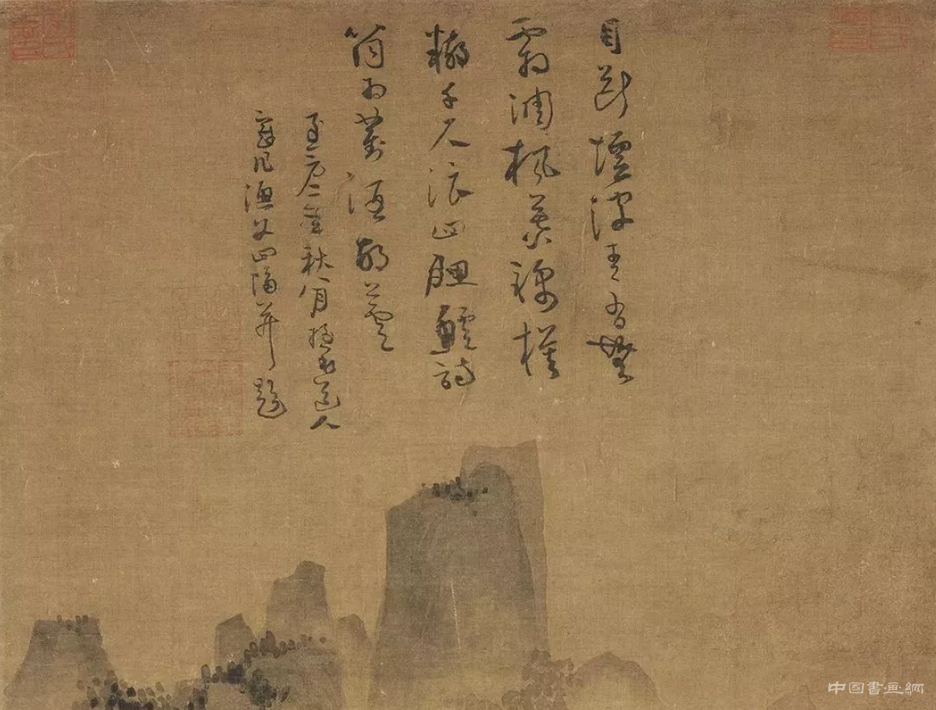 目斷煙波青有無
霜凋楓葉錦模
糊千尺浪四腮鱸詩
筒相對酒胡蘆
至元二年秋八月梅花道人
戲作漁父四幅并題
中国書画網